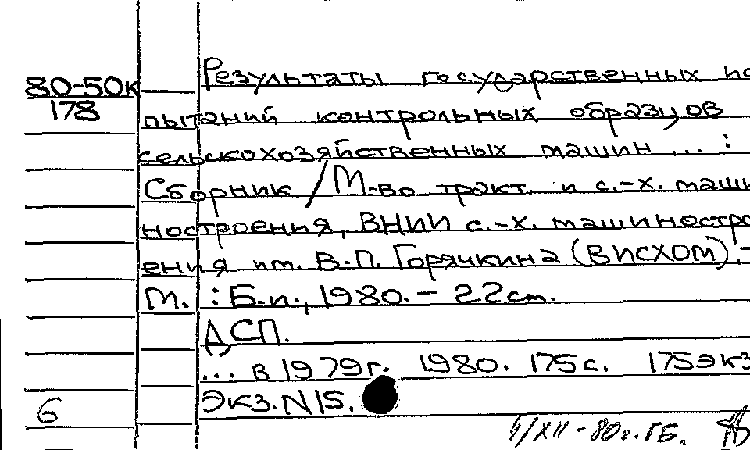 80-50к
178
Результаты государственных ис
пытаний контрольных образцов
сельскохозяйственных машин ... :
Сборник / М-во тракт. и с.-х. маши
ностроения, ВНИИ с.-х. машиностро
ения им. В.П. Горячкина (ВИСХОМ). -
М. : Б.и., 1980. - 22 см.
ДСП.
... в 1979 г. 1980. 175 с. 175 экз
6 Экз. N 15.
/XII - 80 г. ГБ.